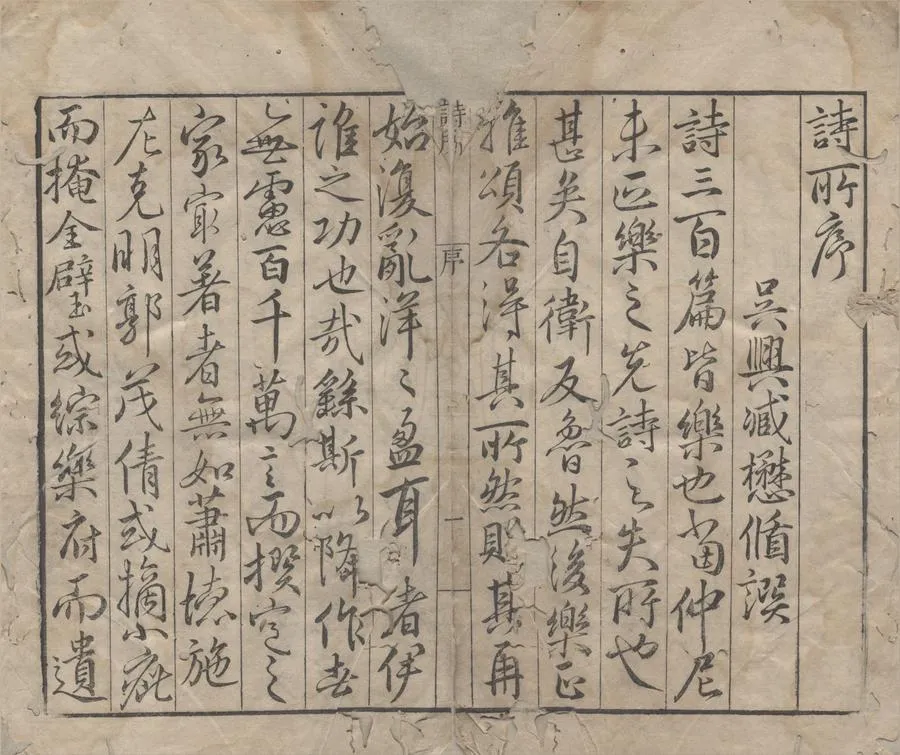 詩所序
吳興臧懋循譔
詩三百篇皆樂也當仲尼
未正樂之先詩之失所也
甚矣自衛反魯然後樂正
雅頌各得其所然則其再
詩所 序 一
始復亂洋〻盈耳者伊
誰之功也哉繇斯以降作者
無慮百千萬言而撰定之
家最著者無如蕭德施
左克明郭茂倩或摘小疵
而掩全璧或綜樂府而遺